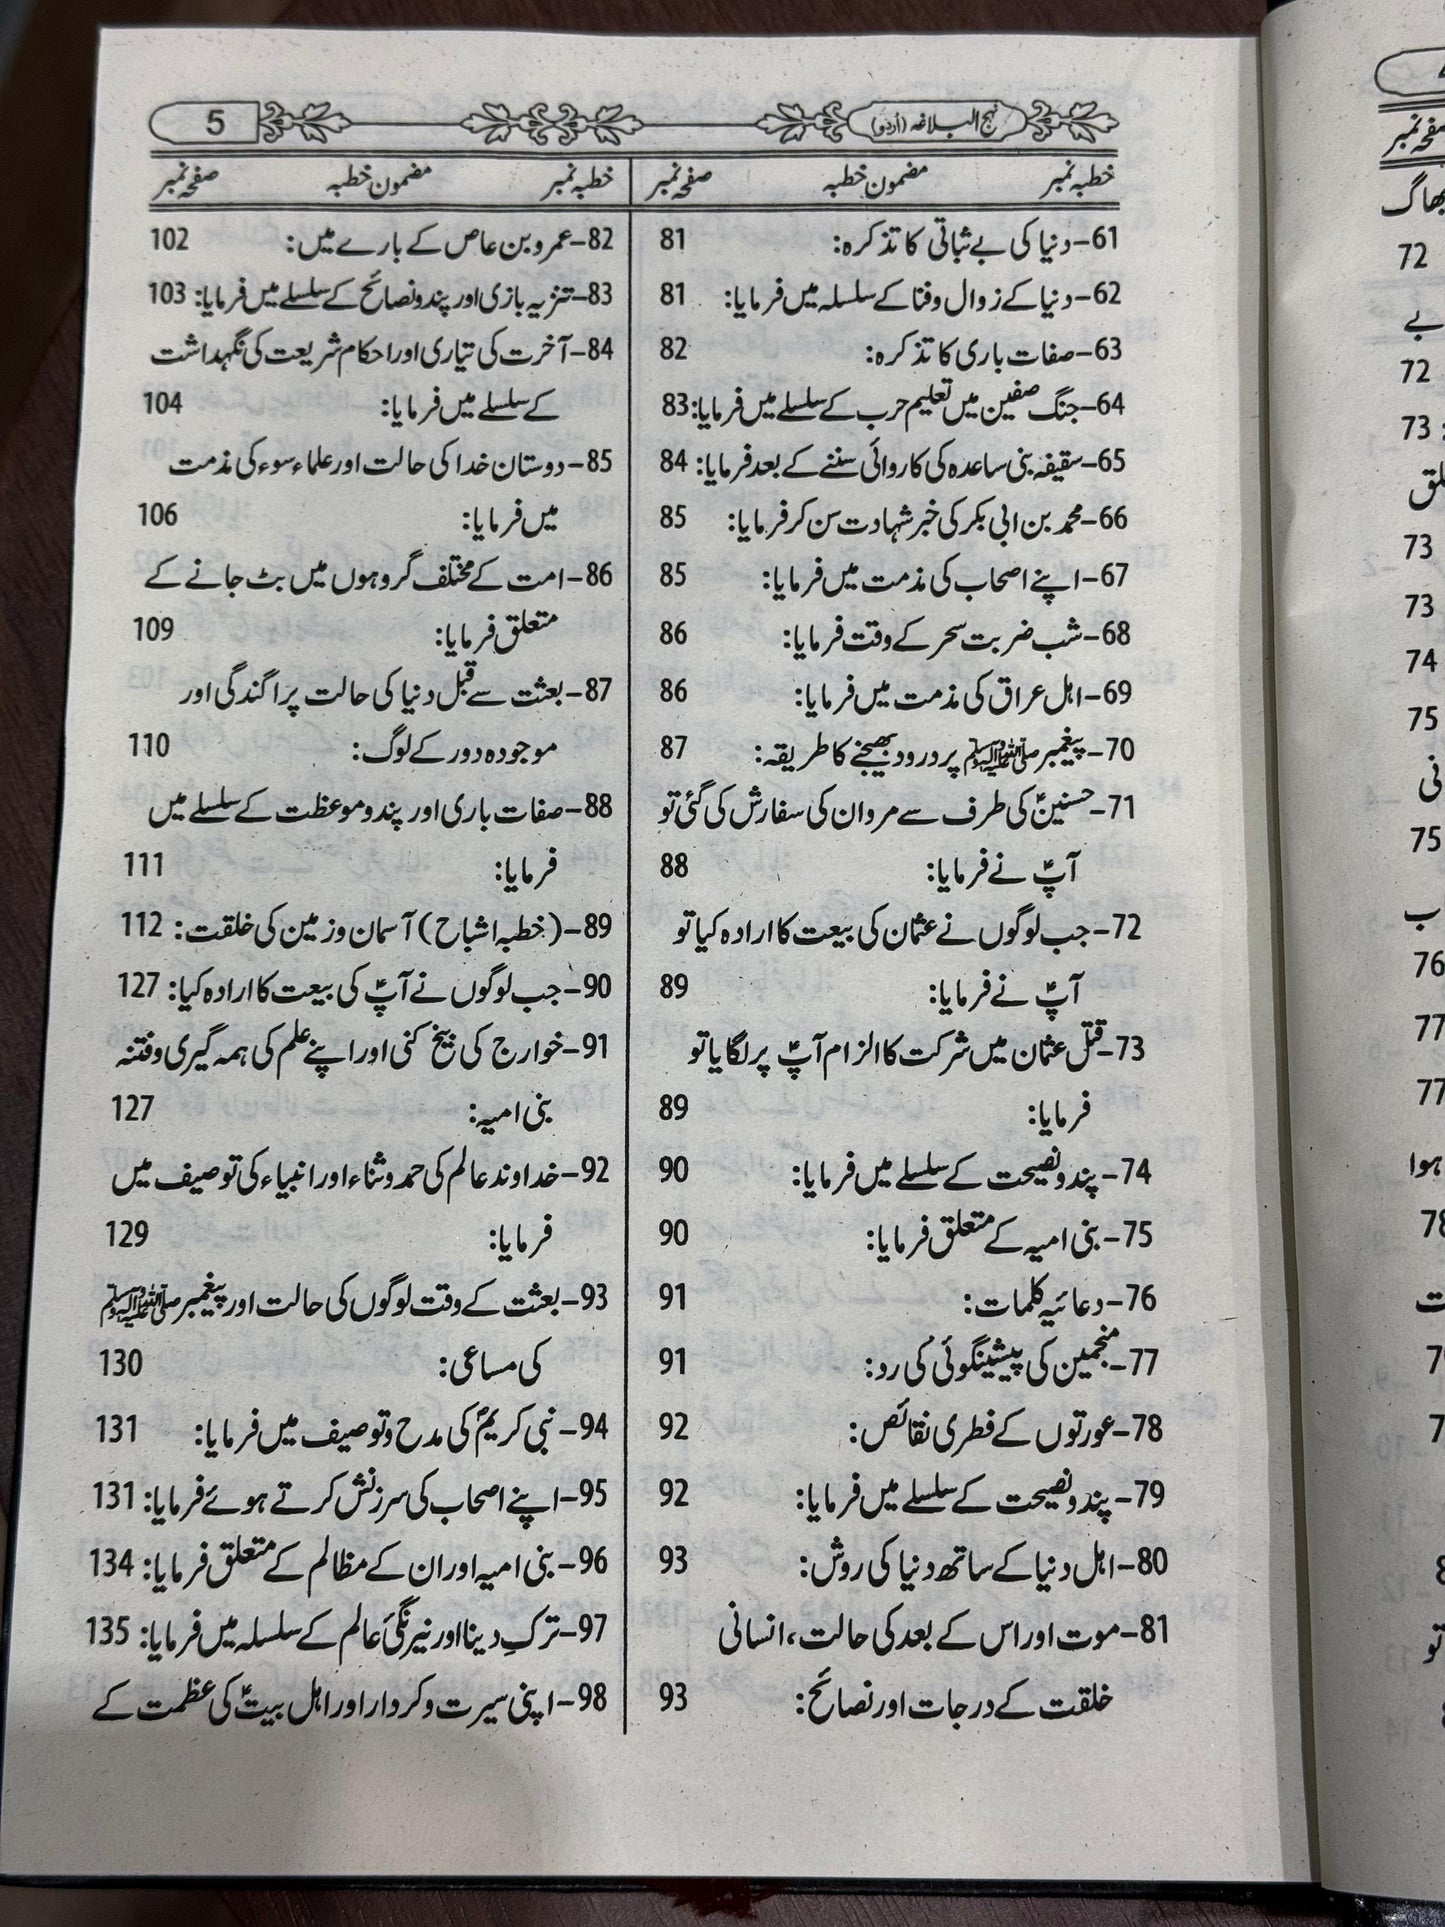 نہج البلاغہ (اُردو)
5
خطبہ نمبر مضمون خطبہ صفحہ نمبر
61-دنیا کی بے ثباتی کا تذکرہ: 81
62-دنیا کے زوال وفنا کے سلسلہ میں فرمایا: 81
63-صفات باری کا تذکرہ: 82
64-جنگ صفین میں تعلیم حرب کے سلسلے میں فرمایا: 83
65-سقیفہ بنی ساعدہ کی کاروائی سننے کے بعد فرمایا: 84
66-محمد بن ابی بکر کی خبر شہادت سن کر فرمایا: 85
67-اپنے اصحاب کی مذمت میں فرمایا: 85
68-شب ضربت سحر کے وقت فرمایا: 86
69-اہل عراق کی مذمت میں فرمایا: 86
70-پیغمبر ﷺ پر درود بھیجنے کا طریقہ: 87
71-حسنینؑ کی طرف سے مروان کی سفارش کی گئی تو
آپؑ نے فرمایا: 88
72-جب لوگوں نے عثمان کی بیعت کا ارادہ کیا تو
آپؑ نے فرمایا: 89
73-قتل عثمان میں شرکت کا الزام آپؑ پر لگایا تو
فرمایا: 89
74-پند ونصیحت کے سلسلے میں فرمایا: 90
75-بنی امیہ کے متعلق فرمایا: 90
76-دعائیہ کلمات: 91
77-منجمین کی پیشینگوئی کی رد: 91
78-عورتوں کے فطری نقائص: 92
79-پند ونصیحت کے سلسلے میں فرمایا: 92
80-اہل دنیا کے ساتھ دنیا کی روش: 93
81-موت اور اس کے بعد کی حالت، انسانی
خلقت کے درجات اور نصائح: 93
خطبہ نمبر مضمون خطبہ صفحہ نمبر
82-عمرو بن عاص کے بارے میں: 102
83-تنزیہ بازی اور پند ونصائح کے سلسلے میں فرمایا: 103
84-آخرت کی تیاری اور احکام شریعت کی نگہداشت
کے سلسلے میں فرمایا: 104
85-دوستان خدا کی حالت اور علماء سوء کی مذمت
میں فرمایا: 106
86-امت کے مختلف گروہوں میں بٹ جانے کے
متعلق فرمایا: 109
87-بعثت سے قبل دنیا کی حالت پراگندگی اور
موجودہ دور کے لوگ: 110
88-صفات باری اور پند وموعظت کے سلسلے میں
فرمایا: 111
89-(خطبہ اشباح) آسمان وزمین کی خلقت: 112
90-جب لوگوں نے آپؑ کی بیعت کا ارادہ کیا: 127
91-خوارج کی بیخ کنی اور اپنے علم کی ہمہ گیری وفتنہ
بنی امیہ: 127
92-خداوند عالم کی حمد وثناء اور انبیاء کی توصیف میں
فرمایا: 129
93-بعثت کے وقت لوگوں کی حالت اور پیغمبر ﷺ
کی مساعی: 130
94-نبی کریمؐ کی مدح وتوصیف میں فرمایا: 131
95-اپنے اصحاب کی سرزنش کرتے ہوئے فرمایا: 131
96-بنی امیہ اور ان کے مظالم کے متعلق فرمایا: 134
97-ترکِ دینا اور نیرنگیٔ عالم کے سلسلہ میں فرمایا: 135
98-اپنی سیرت وکردار اور اہل بیتؑ کی عظمت کے
صفحہ نمبر
بھاگ
72
بے
72
73
73
73
74
75
نی
75
ب
76
77
77
ہوا
ت
تو